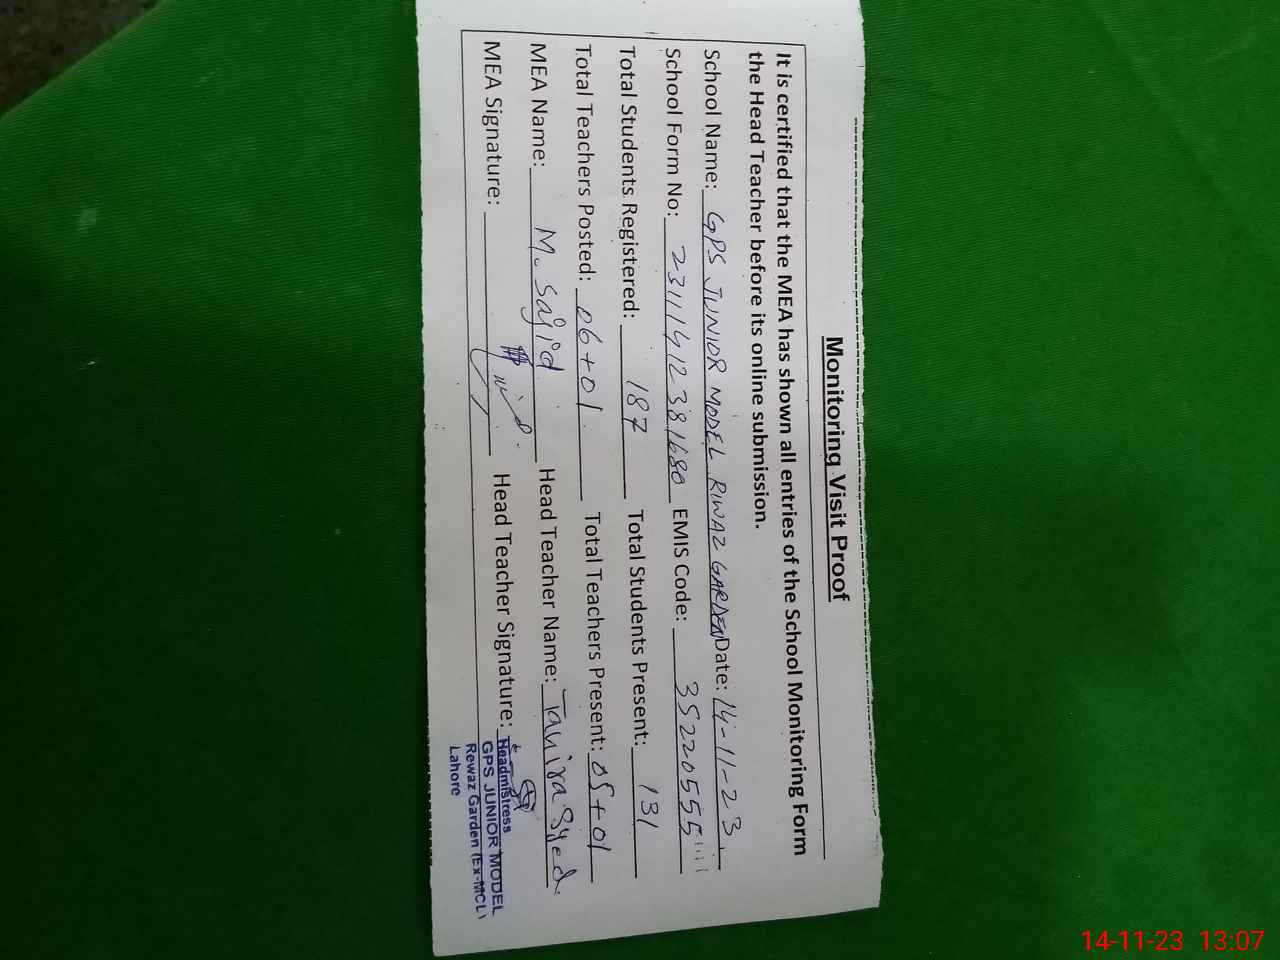 Monitoring Visit Proof
It is certified that the MEA has shown all entries of the School Monitoring Form
the Head Teacher before its online submission.
School Name: GPS JUNIOR MODEL RIWAZ GARDEN Date: 14-11-23
School Form No: 2311141238 1680 EMIS Code: 35220555
Total Students Registered: 187 Total Students Present: 131
Total Teachers Posted: 06+01 Total Teachers Present: 05+01
MEA Name: M. Sajid Head Teacher Name: Tahira Syed
MEA Signature: Head Teacher Signature:
Headmistress
GPS JUNIOR MODEL
Rewaz Garden (Ex-MCL)
Lahore
14-11-23 13:07